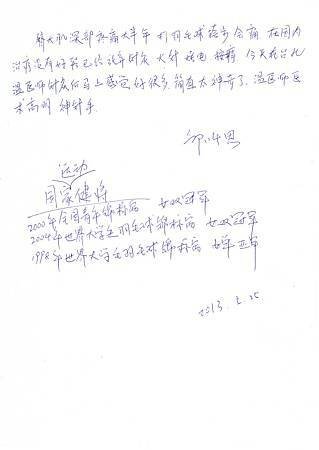 臀大肌深部疼痛大半年 打羽毛球 会痛 在国内
治疗没有好 大针 按摩 今天在台北
温医师针灸后马上感觉好很多 简直太神奇了 温医师医
术高明 神针手
运动
国家健将
2000年全国青年锦标赛 女双冠军
2004年世界大学生羽毛球锦标赛 女双冠军
1998年世界大学生羽毛球锦标赛 女单亚军
2013.2.25